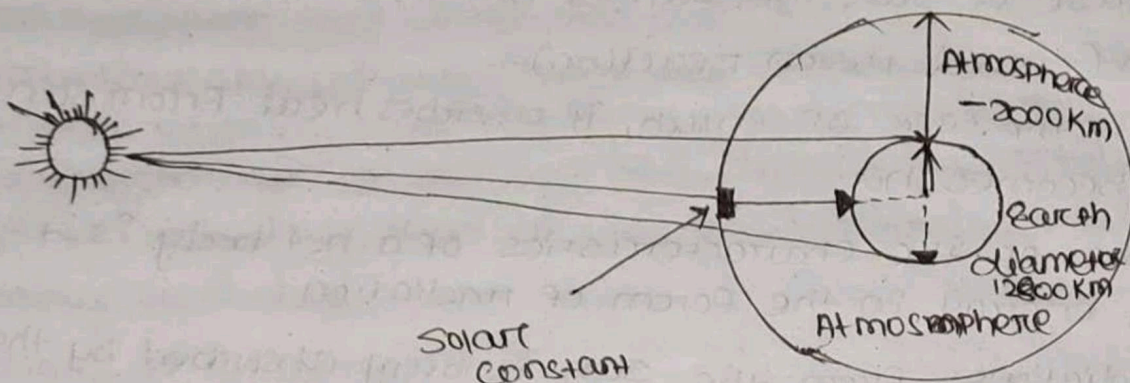 Atmosphere
-2000Km
Earth
diameter
12800Km
Atmosmphere
Solar
constant